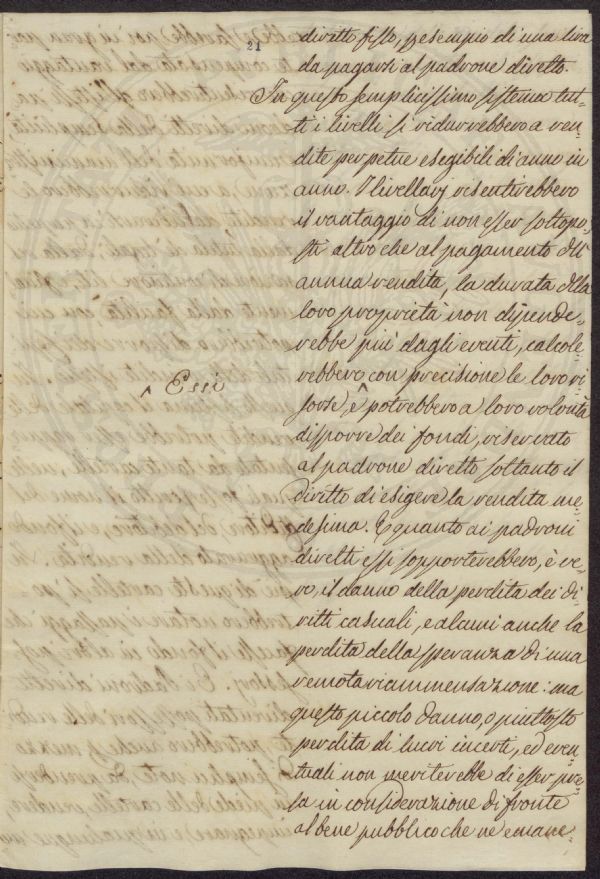 21
diretto fisso, p esempio di una lira
da pagarsi al padrone diretto.
In questo semplicissimo sistema tut-
ti i livelli si ridurrebbero a ren-
dite perpetue esegibili di anno in
anno. I livellarj risentirebbero
il vantaggio di non esser sottopo-
sti altro che al pagamento dell'
annua rendita, la durata della
loro proprietà non dipende-
rebbe più dagli eventi, calcole-
rebbero con precisione le loro ri-
^ Essi
sorse, ^ e potrebbero a loro volontà
disporre dei fondi, riservato
al padrone diretto soltanto il
diritto di esigere la rendita me-
desima. E quanto ai padroni
diretti essi sopporterebbero, è ve-
ro, il danno della perdita dei di-
ritti casuali, e alcuni anche la
perdita della speranza di una
remota riammensazione: ma
questo piccolo danno, o piuttosto
perdita di lucri incerti, ed even-
tuali non meriterebbe di esser pre-
sa in considerazione di fronte
al bene pubblico che ne emane-